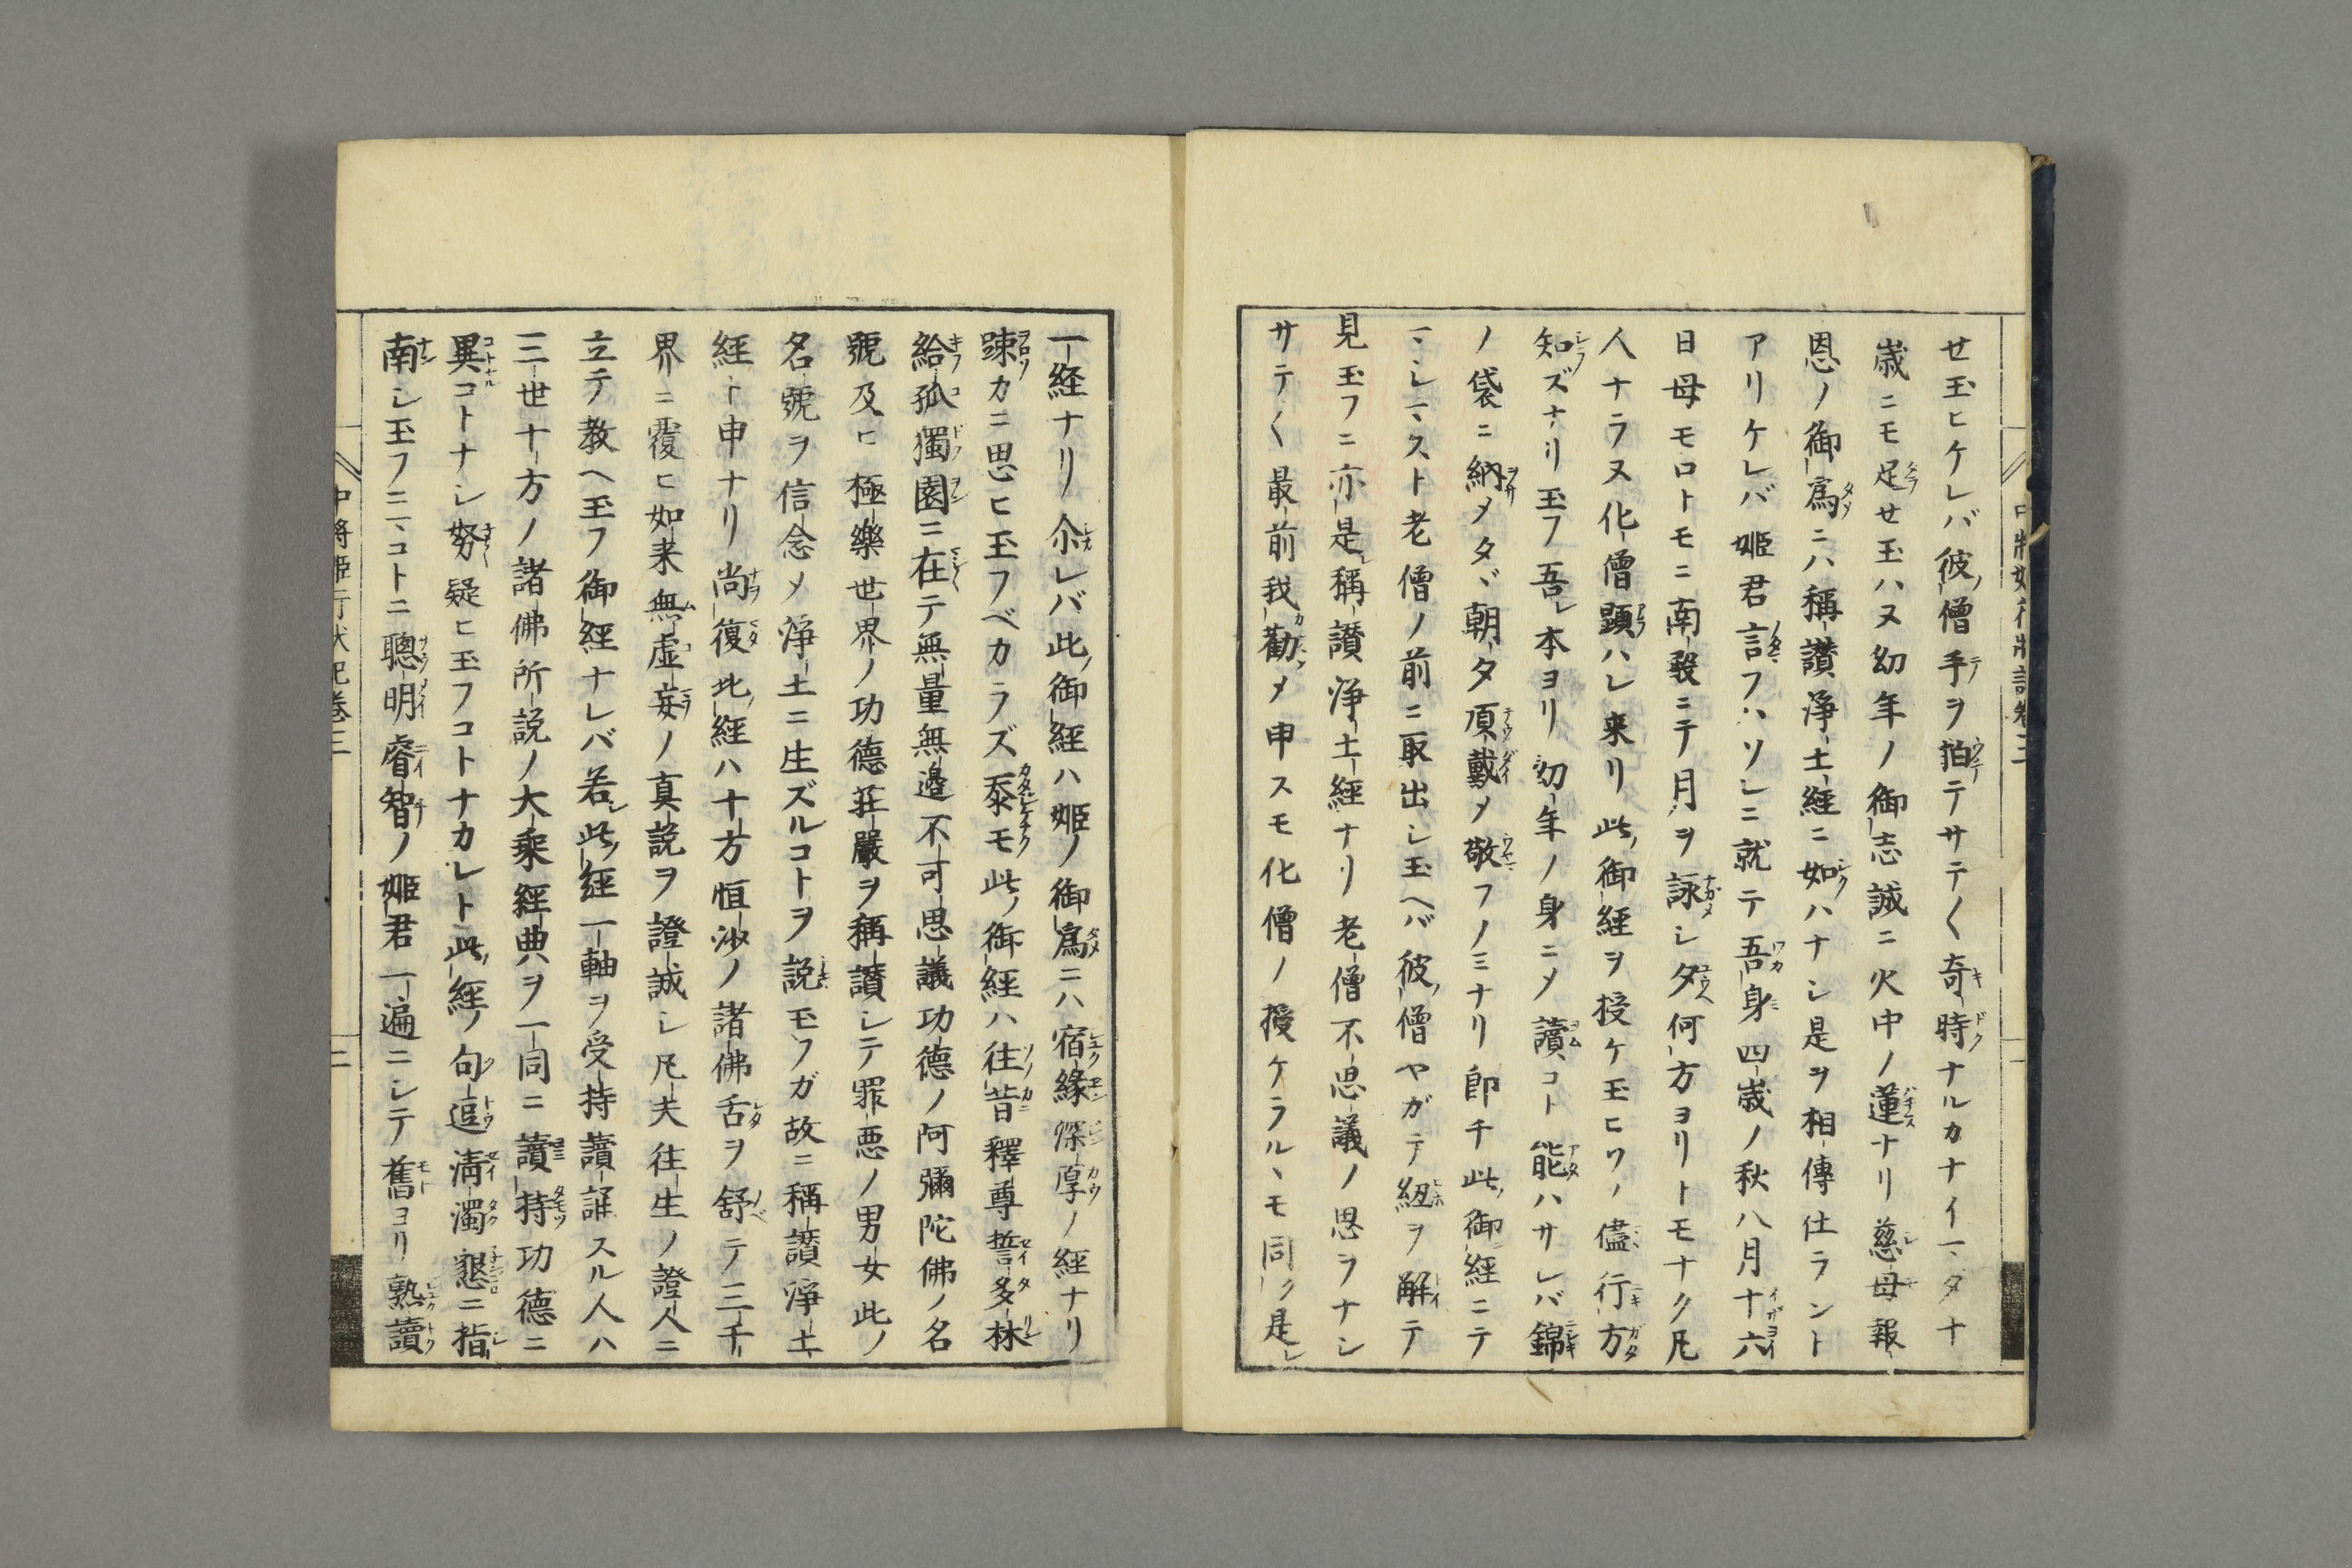 せ玉ヒケレバ彼ノ僧手ヲ拍テサテ〱奇時ナルカナイマダナ
歳ニモ足せ玉ハヌ幼年ノ御志誠ニ火中ノ蓮ナリ慈母報
恩ノ御爲ニハ稱讃淨土經ニ如ハナシ是ヲ相傳仕ラント
アリケレバ姫君言フハソレニ就テ吾身四歳ノ秋八月十六
日母モロトモニ南殿ニテ月ヲ詠シ夕何方ヨリトモナク凡
人ナラヌ化僧顕ハレ来リ此ノ御經ヲ授ケ玉ヒワ儘行方
知ズナリ玉フ吾レ本ヨリ幼年ノ身ニメ讀コト能ハサレバ錦
ノ袋ニ納メタヾ朝夕頂戴メ敬フノミナリ即チ此ノ御經ニテ
マシマスト老僧ノ前ニ取出シ玉ヘバ彼ノ僧ヤガテ紐ヲ解テ
見玉フニ亦是レ稱讃淨土經ナリ老僧不思議ノ思ヲナシ
サテ〱最前我勸メ申スモ化僧ノ授ケラルヽモ同ク是レ
一経ナリ尒レバ此ノ御経ハ姫ノ御爲ニハ宿縁深厚ノ経ナリ
踈カニ思ヒ玉フベカラズ忝モ此ノ御經ハ往昔釋尊誓多林
給孤獨園ニ在テ無量無邉不可思議功德ノ阿彌陀佛ノ名
號及ヒ極樂世界ノ功德荘嚴ヲ稱讃シテ罪悪ノ男女此ノ
名號ヲ信念メ淨土ニ生ズルコトヲ説玉フガ故ニ稱讃淨土
経ト申ナリ尚復此ノ經ハ十方恒沙ノ諸佛舌ヲ舒テ三千
界ニ覆ヒ如来無虚妄ノ真説ヲ證誠シ凡夫往生ノ證人ニ
立テ教ヘ玉フ御經ナレバ若シ此ノ經一軸ヲ受持讀誦スル人ハ
三世十方ノ諸佛所説ノ大乘經典ヲ一同ニ讀持功德ニ
異コトナシ努疑ヒ玉フコトナカレト此ノ經ノ句逗淸濁懇ニ指
南シ玉フニマコトニ聰明睿智ノ姫君一遍ニシテ舊ヨリ熟讀
中將姫行状記卷三
二